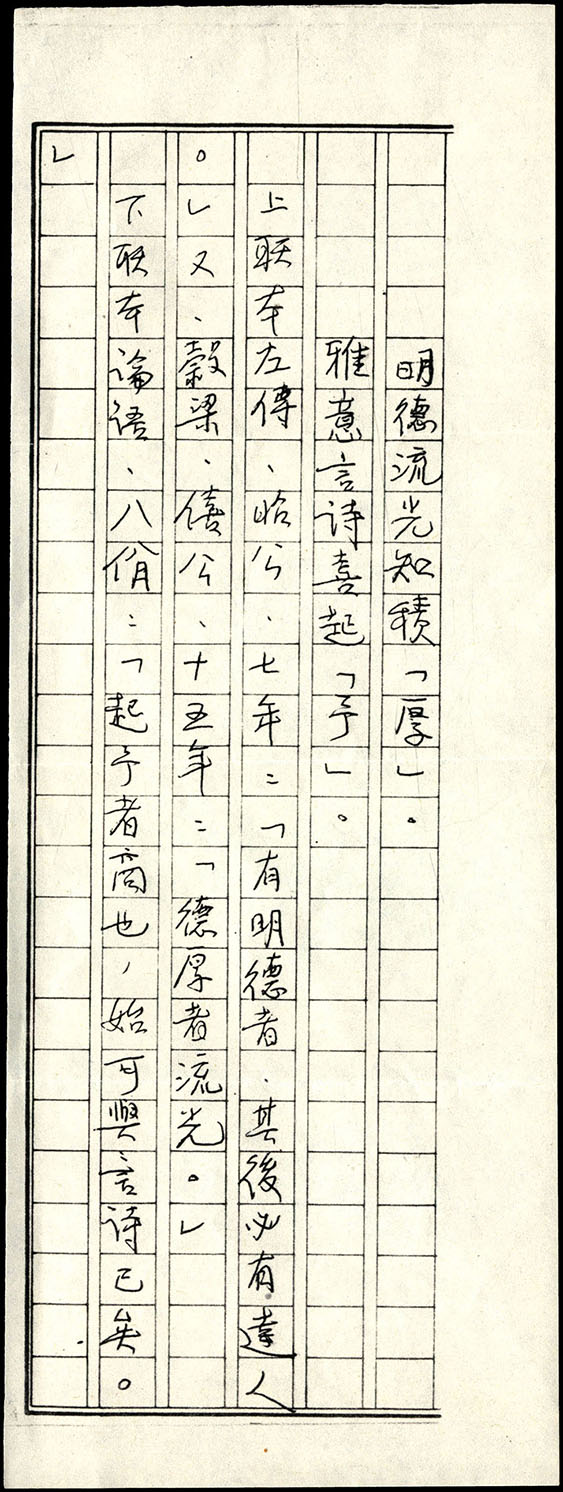 明德流光知積「厚」。
雅意言诗喜起「予」。
上联本左傳、昭公、七年：「有明德者、其後必有達人
。」又、穀梁、僖公、十五年：「德厚者流光。」
下联本論语、八佾：「起予者商也，始可與言诗已矣。
」